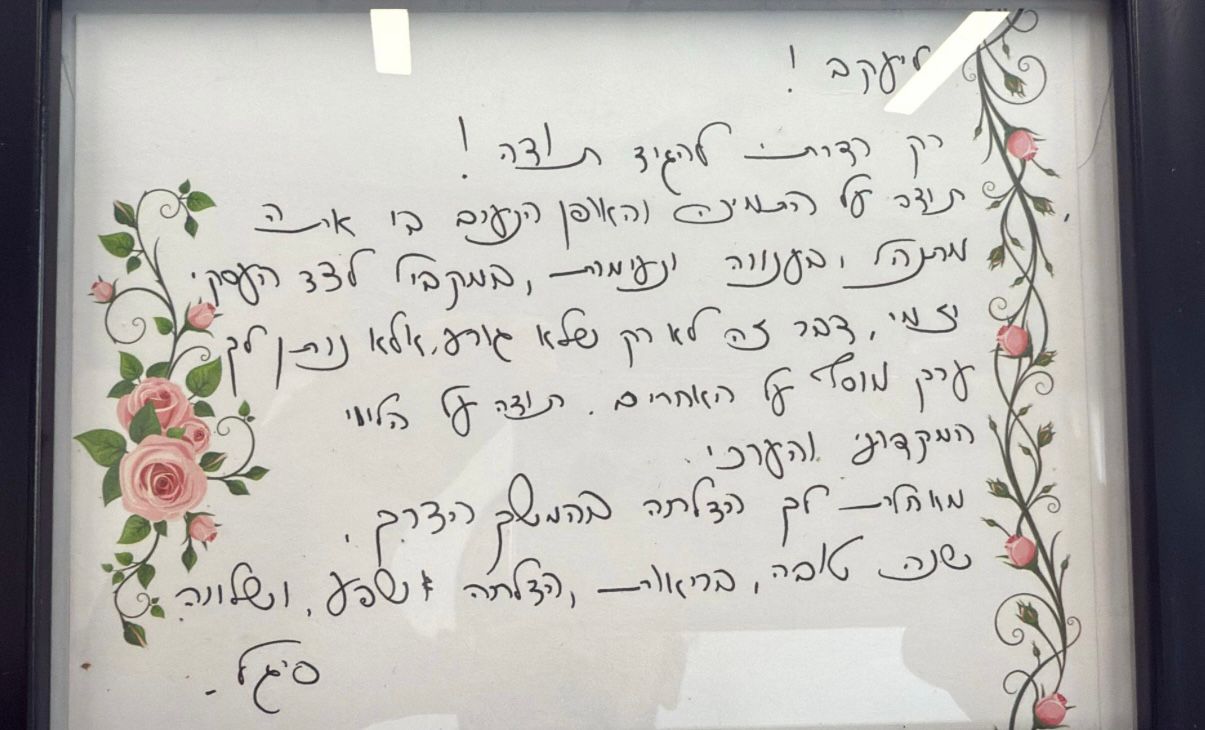 ליעקב !
רק רציתי להגיד תודה !
תודה על התמיכה והאופן הנעים בו אתה
מתנהל, בענווה ונעימות, במקביל לצד העסקי
יזמי, דבר זה לא רק שלא גורע, אלא נותן לך
ערך מוסף על האחרים. תודה על הליווי
המקצועי והערכי.
מאחלת לך הצלחה בהמשך הדרך,
שנה טובה, בריאות, הצלחה שפע, ושלווה.
סיגל -